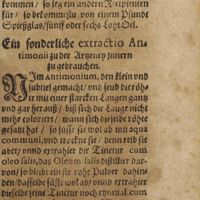 kommen / so leg ein andern Recipienten
für / so bekommestu von einem Pfunde
Spießglas / fünff oder sechs Loht Oel.
Ein sonderliche extractio An-
timonii zu der Artzeney innern
zu gebrauchen.
NIm Antimonium, den klein und
subtiel gemacht / und seud die röh-
te mit einer starcken Laugen gantz
und gar herauß / biß sich die Lauge nicht
mehr coloriert / wann sich dieselbe röhte
gesetzt hat / so süsse sie wol ab mit aqua
communi, und trockne sie / denn reib sie
aber / unnd extrahier die Tinctur cum
oleo salis, das Oleum salis distillier dar-
von / so bleibt ein rohe Pulver dahin-
den / dasselbe süsse wol ab / unnd extrahier
die reine Tinctur noch einmal cum